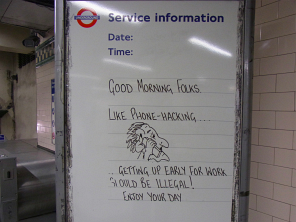 Service information
Date:
Time:
GOOD MORNING FOLKS.
LIKE PHONE-HACKING....
.. GETTING UP EARLY FOR WORK
SHOULD BE ILLEGAL!
ENJOY YOUR DAY